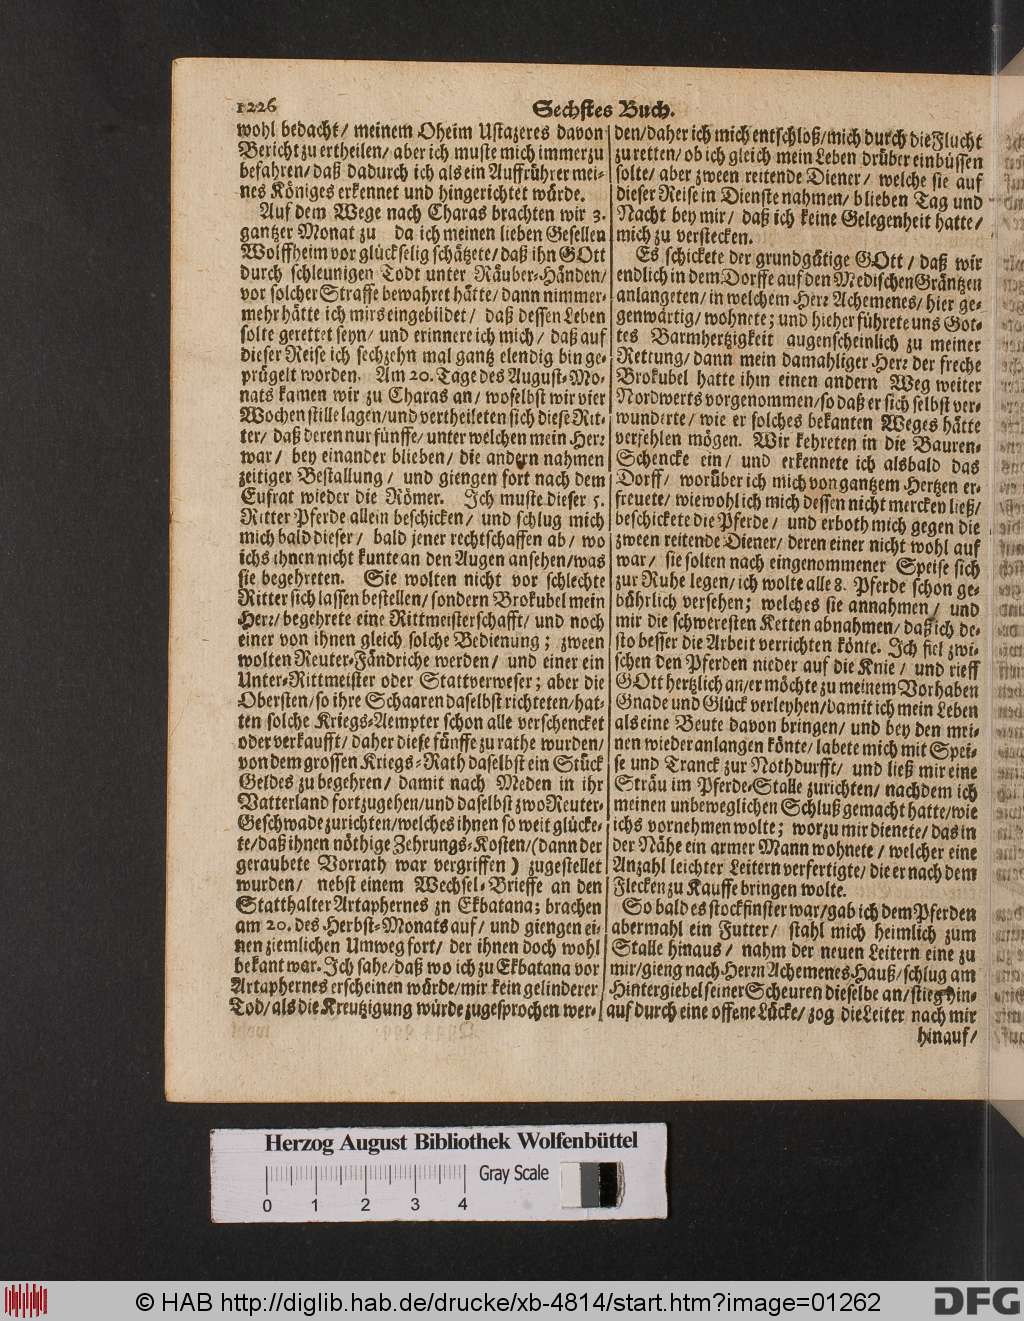 1226
Sechstes Buch.
wohl bedacht/ meinem Oheim Ustazeres davon
Bericht zu ertheilen/ aber ich muste mich immerzu
befahren/ daß dadurch ich als ein Auffrührer mei-
nes Königes erkennet und hingerichtet würde.
Auf dem Wege nach Charas brachten wir 3.
gantzer Monat zu da ich meinen lieben Gesellen
Wolffheim vor glückselig schätzete/ daß ihn GOtt
durch schleunigen Todt unter Räuber-Händen/
vor solcher Straffe bewahret hätte/ dann nimmer-
mehr hätte ich mirs eingebildet/ daß dessen Leben
solte gerettet seyn/ und erinnere ich mich/ daß auf
dieser Reise ich sechzehn mal gantz elendig bin ge-
prügelt worden. Am 20. Tage des August-Mo-
nats kamen wir zu Charas an/ woselbst wir vier
Wochen stille lagen/ und vertheileten sich diese Rit-
ter/ daß deren nur fünffe/ unter welchen mein Herr
war/ bey einander blieben/ die andern nahmen
zeitiger Bestallung/ und giengen fort nach dem
Eufrat wieder die Römer. Ich muste dieser 5.
Ritter Pferde allein beschicken/ und schlug mich
mich bald dieser/ bald jener rechtschaffen ab/ wo
ichs ihnen nicht kunte an den Augen ansehen/ was
sie begehreten. Sie wolten nicht vor schlechte
Ritter sich lassen bestellen/ sondern Brokubel mein
Herr/ begehrete eine Rittmeisterschafft/ und noch
einer von ihnen gleich solche Bedienung; zween
wolten Reuter-Fändriche werden/ und einer ein
Unter-Rittmeister oder Stattverweser; aber die
Obersten/ so ihre Schaaren daselbst richteten/ hat-
ten solche Kriegs-Aempter schon alle verschencket
oder verkaufft/ daher diese fünffe zu rathe wurden/
von dem grossen Kriegs-Rath daselbst ein Stück
Geldes zu begehren/ damit nach Meden in ihr
Vatterland fortzugehen/ und daselbst zwo Reuter-
Geschwade zurichten/ welches ihnen so weit glücke-
te/ daß ihnen nöthige Zehrungs-Kosten/ (dann der
geraubete Vorrath war vergriffen) zugestellet
wurden/ nebst einem Wechsel-Brieffe an den
Statthalter Artaphernes zn Ekbatana; brachen
am 20. des Herbst-Monats auf/ und giengen ei-
nen ziemlichen Umweg fort/ der ihnen doch wohl
bekant war. Ich sahe/ daß wo ich zu Ekbatana vor
Artaphernes erscheinen würde/ mir kein gelinderer
Tod/ als die Kreutzigung würde zugesprochen wer-
den/ daher ich mich entschloß/ mich durch die Flucht
zu retten/ ob ich gleich mein Leben drüber einbüssen
solte/ aber zween reitende Diener/ welche sie auf
dieser Reise in Dienste nahmen/ blieben Tag und
Nacht bey mir/ daß ich keine Gelegenheit hatte/
mich zu verstecken.
Es schickete der grundgütige GOtt/ daß wir
endlich in dem Dorffe auf den Medischen Gräntzen
anlangeten/ in welchem Herr Achemenes/ hier ge-
genwärtig/ wohnete; und hieher führete uns Got-
tes Barmhertzigkeit augenscheinlich zu meiner
Rettung/ dann mein damahliger Herr der freche
Brokubel hatte ihm einen andern Weg weiter
Nordwerts vorgenommen/ so daß er sich selbst ver-
wunderte/ wie er solches bekanten Weges hätte
verfehlen mögen. Wir kehreten in die Bauren-
Schencke ein/ und erkennete ich alsbald das
Dorff/ worüber ich mich von gantzem Hertzen er-
freuete/ wiewohl ich mich dessen nicht mercken ließ/
beschickete die Pferde/ und erboth mich gegen die
zween reitende Diener/ deren einer nicht wohl auf
war/ sie solten nach eingenommener Speise sich
zur Ruhe legen/ ich wolte alle 8. Pferde schon ge-
bührlich versehen; welches sie annahmen/ und
mir die schweresten Ketten abnahmen/ daß ich de-
sto besser die Arbeit verrichten könte. Ich fiel zwi-
schen den Pferden nieder auf die Knie/ und rieff
GOtt hertzlich an/ er möchte zu meinem Vorhaben
Gnade und Glück verleyhen/ damit ich mein Leben
als eine Beute davon bringen/ und bey den mei-
nen wieder anlangen könte/ labete mich mit Spei-
se und Tranck zur Nothdurfft/ und ließ mir eine
Sträu im Pferde-Stalle zurichten/ nachdem ich
meinen unbeweglichen Schluß gemacht hatte/ wie
ichs vornehmen wolte; worzu mir dienete/ das in
der Nähe ein armer Mann wohnete/ welcher eine
Anzahl leichter Leitern verfertigte/ die er nach dem
Flecken zu Kauffe bringen wolte.
So bald es stockfinster war/ gab ich dem Pferden
abermahl ein Futter/ stahl mich heimlich zum
Stalle hinaus/ nahm der neuen Leitern eine zu
mir/ gieng nach Herrn Achemenes Hauß/ schlug am
Hintergiebel seiner Scheuren dieselbe an/ stieg hin-
auf durch eine offene Lücke/ zog die Leiter nach mir
hinauf/
Herzog August Bibliothek Wolfenbüttel
Gray Scale
0 1 2 3 4
© HAB http://diglib.hab.de/drucke/xb-4814/start.htm?image=01262
DFG